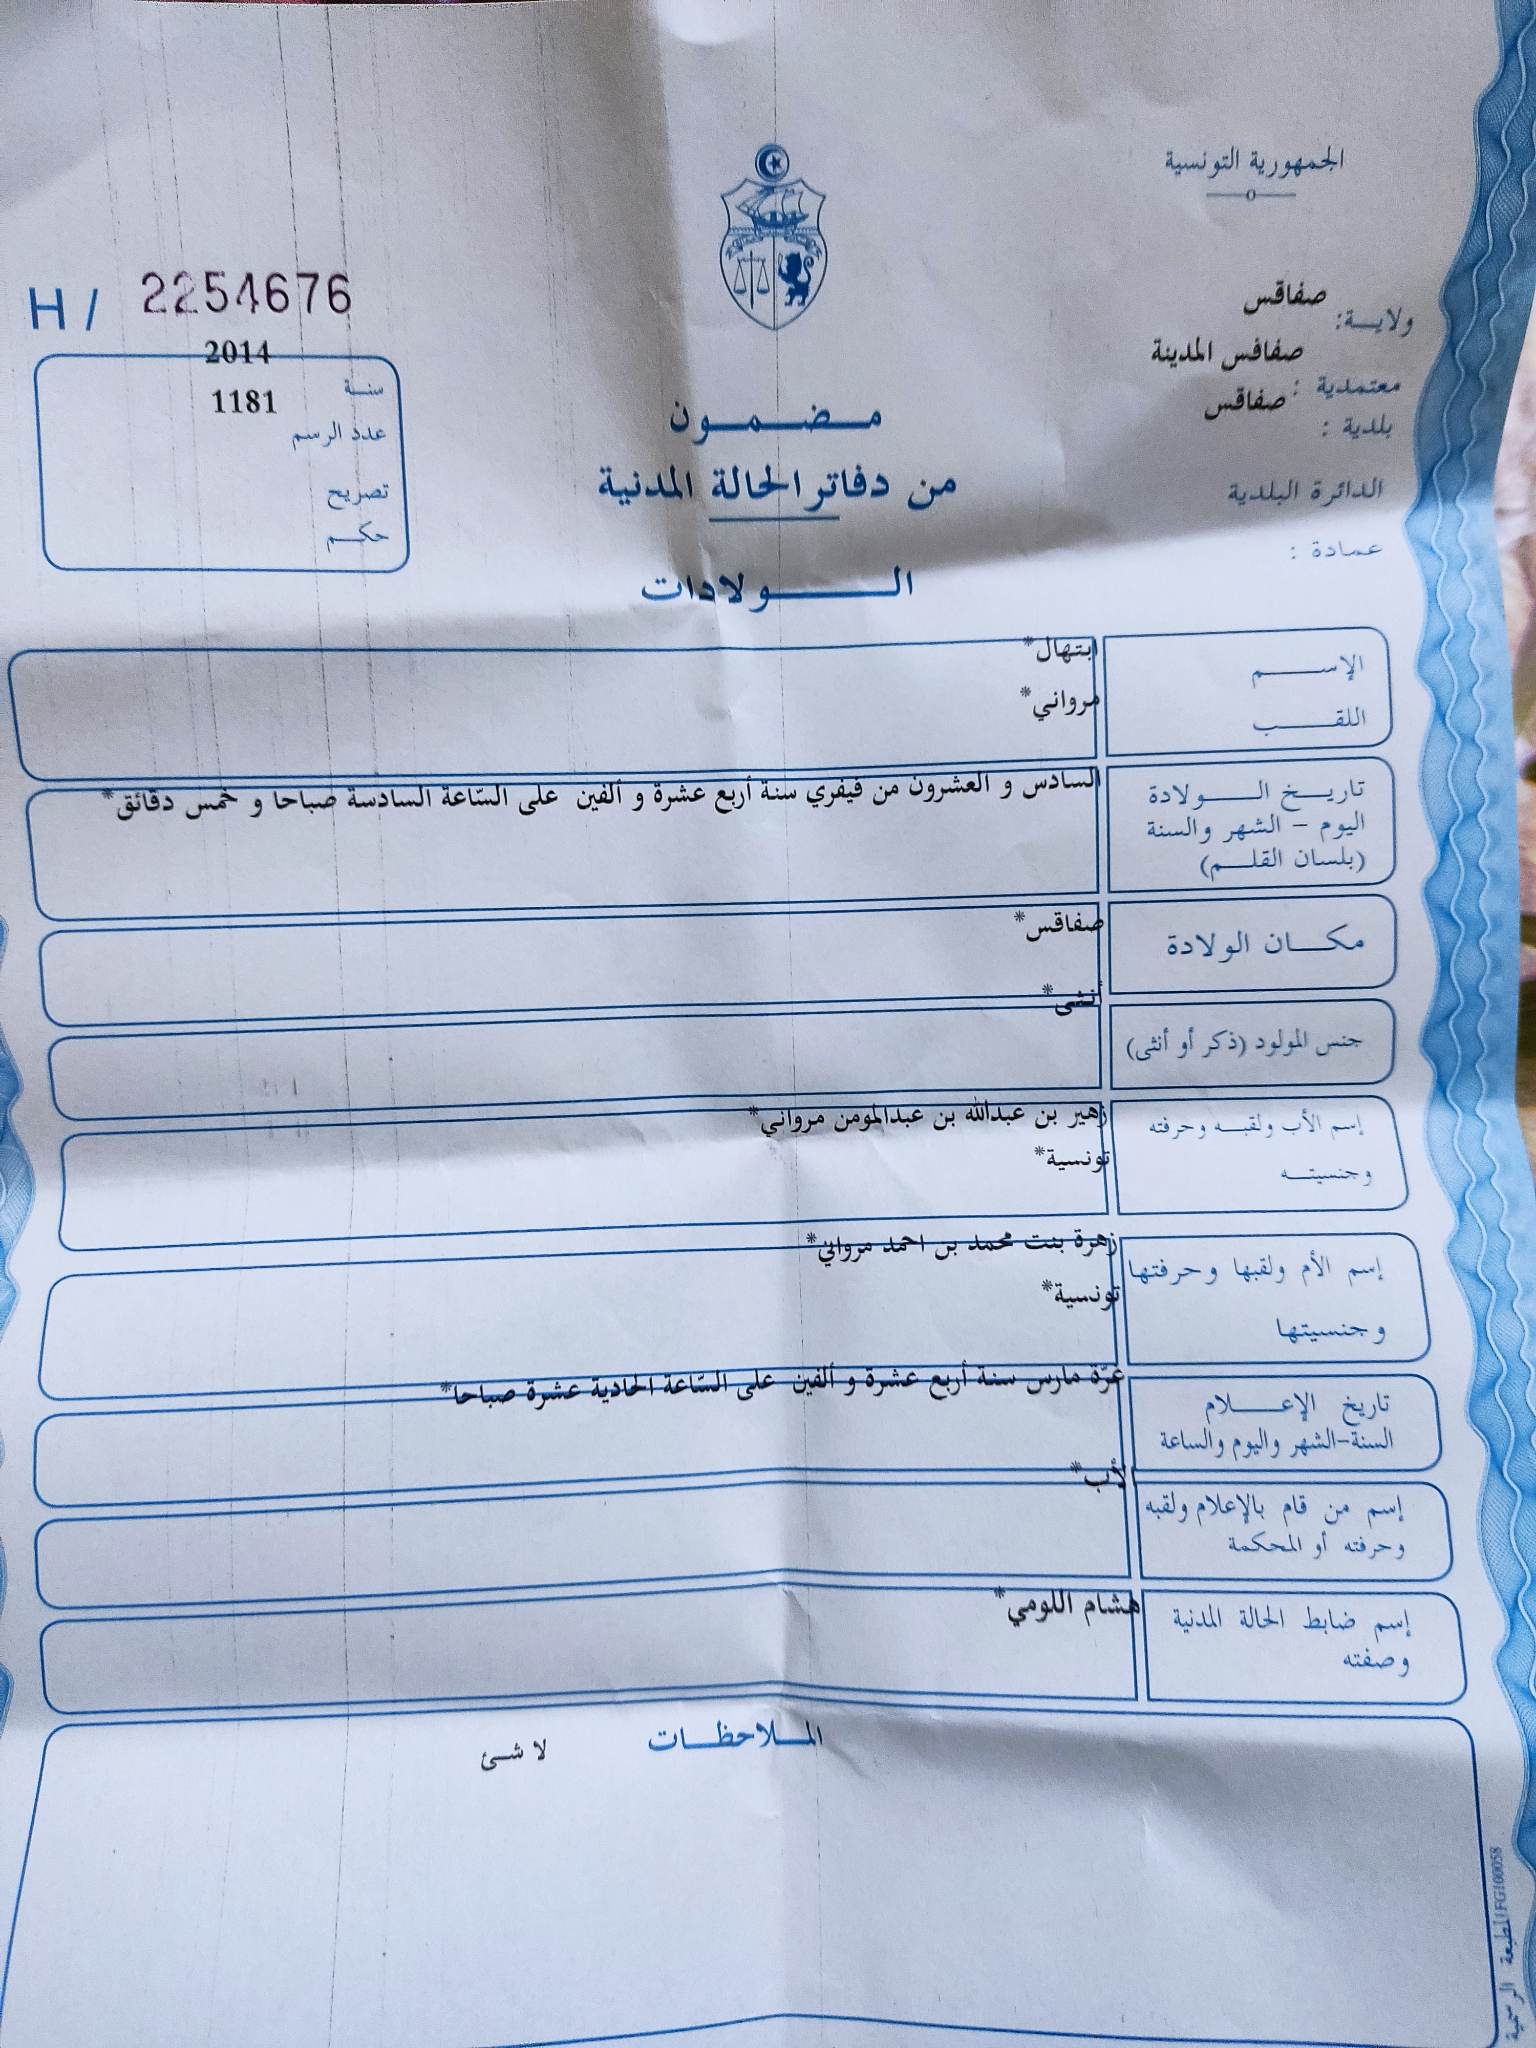 الجمهورية التونسية
ولاية: صفاقس
معتمدية : صفافس المدينة
بلدية : صفاقس
الدائرة البلدية
عمادة :
H / 2254676
سنة 2014
عدد الرسم 1181
تصريح
حكم
مضمون
من دفاتر الحالة المدنية
الولادات
الإسم ابتهال*
اللقب مرواني*
تاريخ الولادة
اليوم - الشهر والسنة
(بلسان القلم)
السادس و العشرون من فيفري سنة أربع عشرة و ألفين على السّاعة السادسة صباحا و خمس دقائق*
مكان الولادة صفاقس*
جنس المولود (ذكر أو أنثى) أنثى*
إسم الأب ولقبه وحرفته
وجنسيته
زهير بن عبدالله بن عبدالمومن مرواني*
تونسية*
إسم الأم ولقبها وحرفتها
وجنسيتها
زهرة بنت محمد بن احمد مرواني*
تونسية*
تاريخ الإعلام
السنة-الشهر واليوم والساعة
غرّة مارس سنة أربع عشرة و ألفين على السّاعة الحادية عشرة صباحا*
إسم من قام بالإعلام ولقبه
وحرفته أو المحكمة
لأب*
إسم ضابط الحالة المدنية
وصفته
هشام اللومي*
الملاحظات
لا شئ
المطبعة الرسمية IFG100058